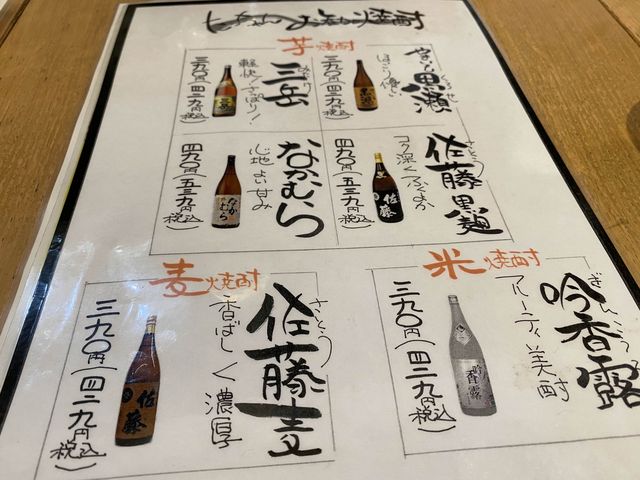 芋焼酎
やきいも黒瀬
くろせ
ほっこり優しい
三九〇円(四二九円税込)
三岳
みたけ
軽快!さっぱり!
三九〇円(四二九円税込)
佐藤黒麹
さとう
コク深くつややか
四九〇円(五三九円税込)
佐藤
なかむら
心地よい甘み
四九〇円(五三九円税込)
なかむら
米焼酎
吟香露
ぎんこうろ
フルーティ美酎
三九〇円(四二九円税込)
吟香露
麦焼酎
佐藤麦
さとう
香ばしく濃厚
三九〇円(四二九円税込)
佐藤